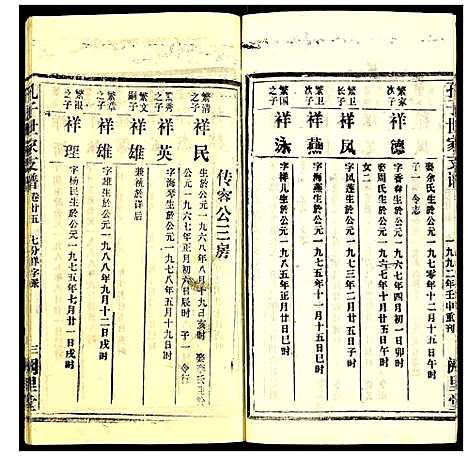 孔子世家支谱
一九九二年壬申重刊
阙里堂
繁家次子
祥德
字香春生於公元一九六七年四月初一日卯时
娶余氏生於公元一九七零年十二月十四日亥时
子一 令志
繁卫长子
祥凤
字凤莲生於公元一九七三年二月廿五日子时
娶周氏生於公元一九七六年正月廿五日丑时
女二
繁卫次子
祥燕
字海燕生於公元一九七五年十一月十五日戌时
繁国之子
祥泳
字祥儿生於公元一九八五年正月廿五日巳时
传容公三房
繁清之子
祥民
生於公元一九六八年八月十九日亥时
娶李氏生於公元一九六七年正月初六日辰时
子一 令行
之子
祥英
字海琴生於公元一九七八年五月十九日时
繁文嗣子
祥雄
兼祧於详后
繁章之子
祥雄
生於公元一九八八年九月十二日戌时
繁银之子
祥理
字杨民生於公元一九七五年七月廿一日戌时
孔子世家支谱
卷廿五
七分祥字派
三
阙里堂